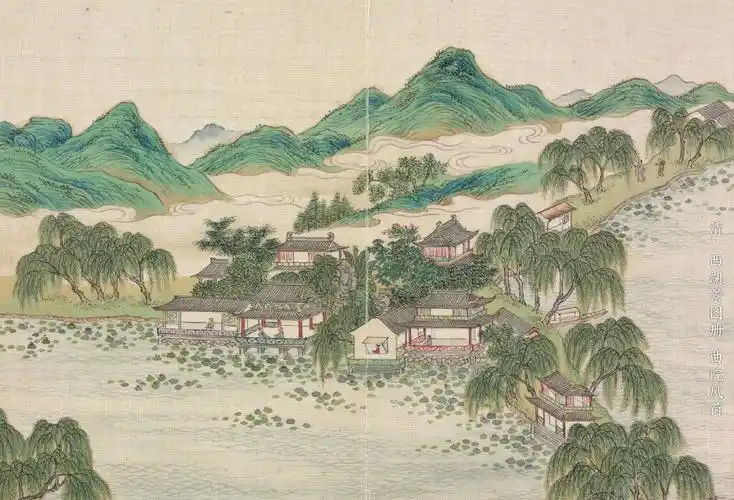 清 西湖景图册 曲院风荷